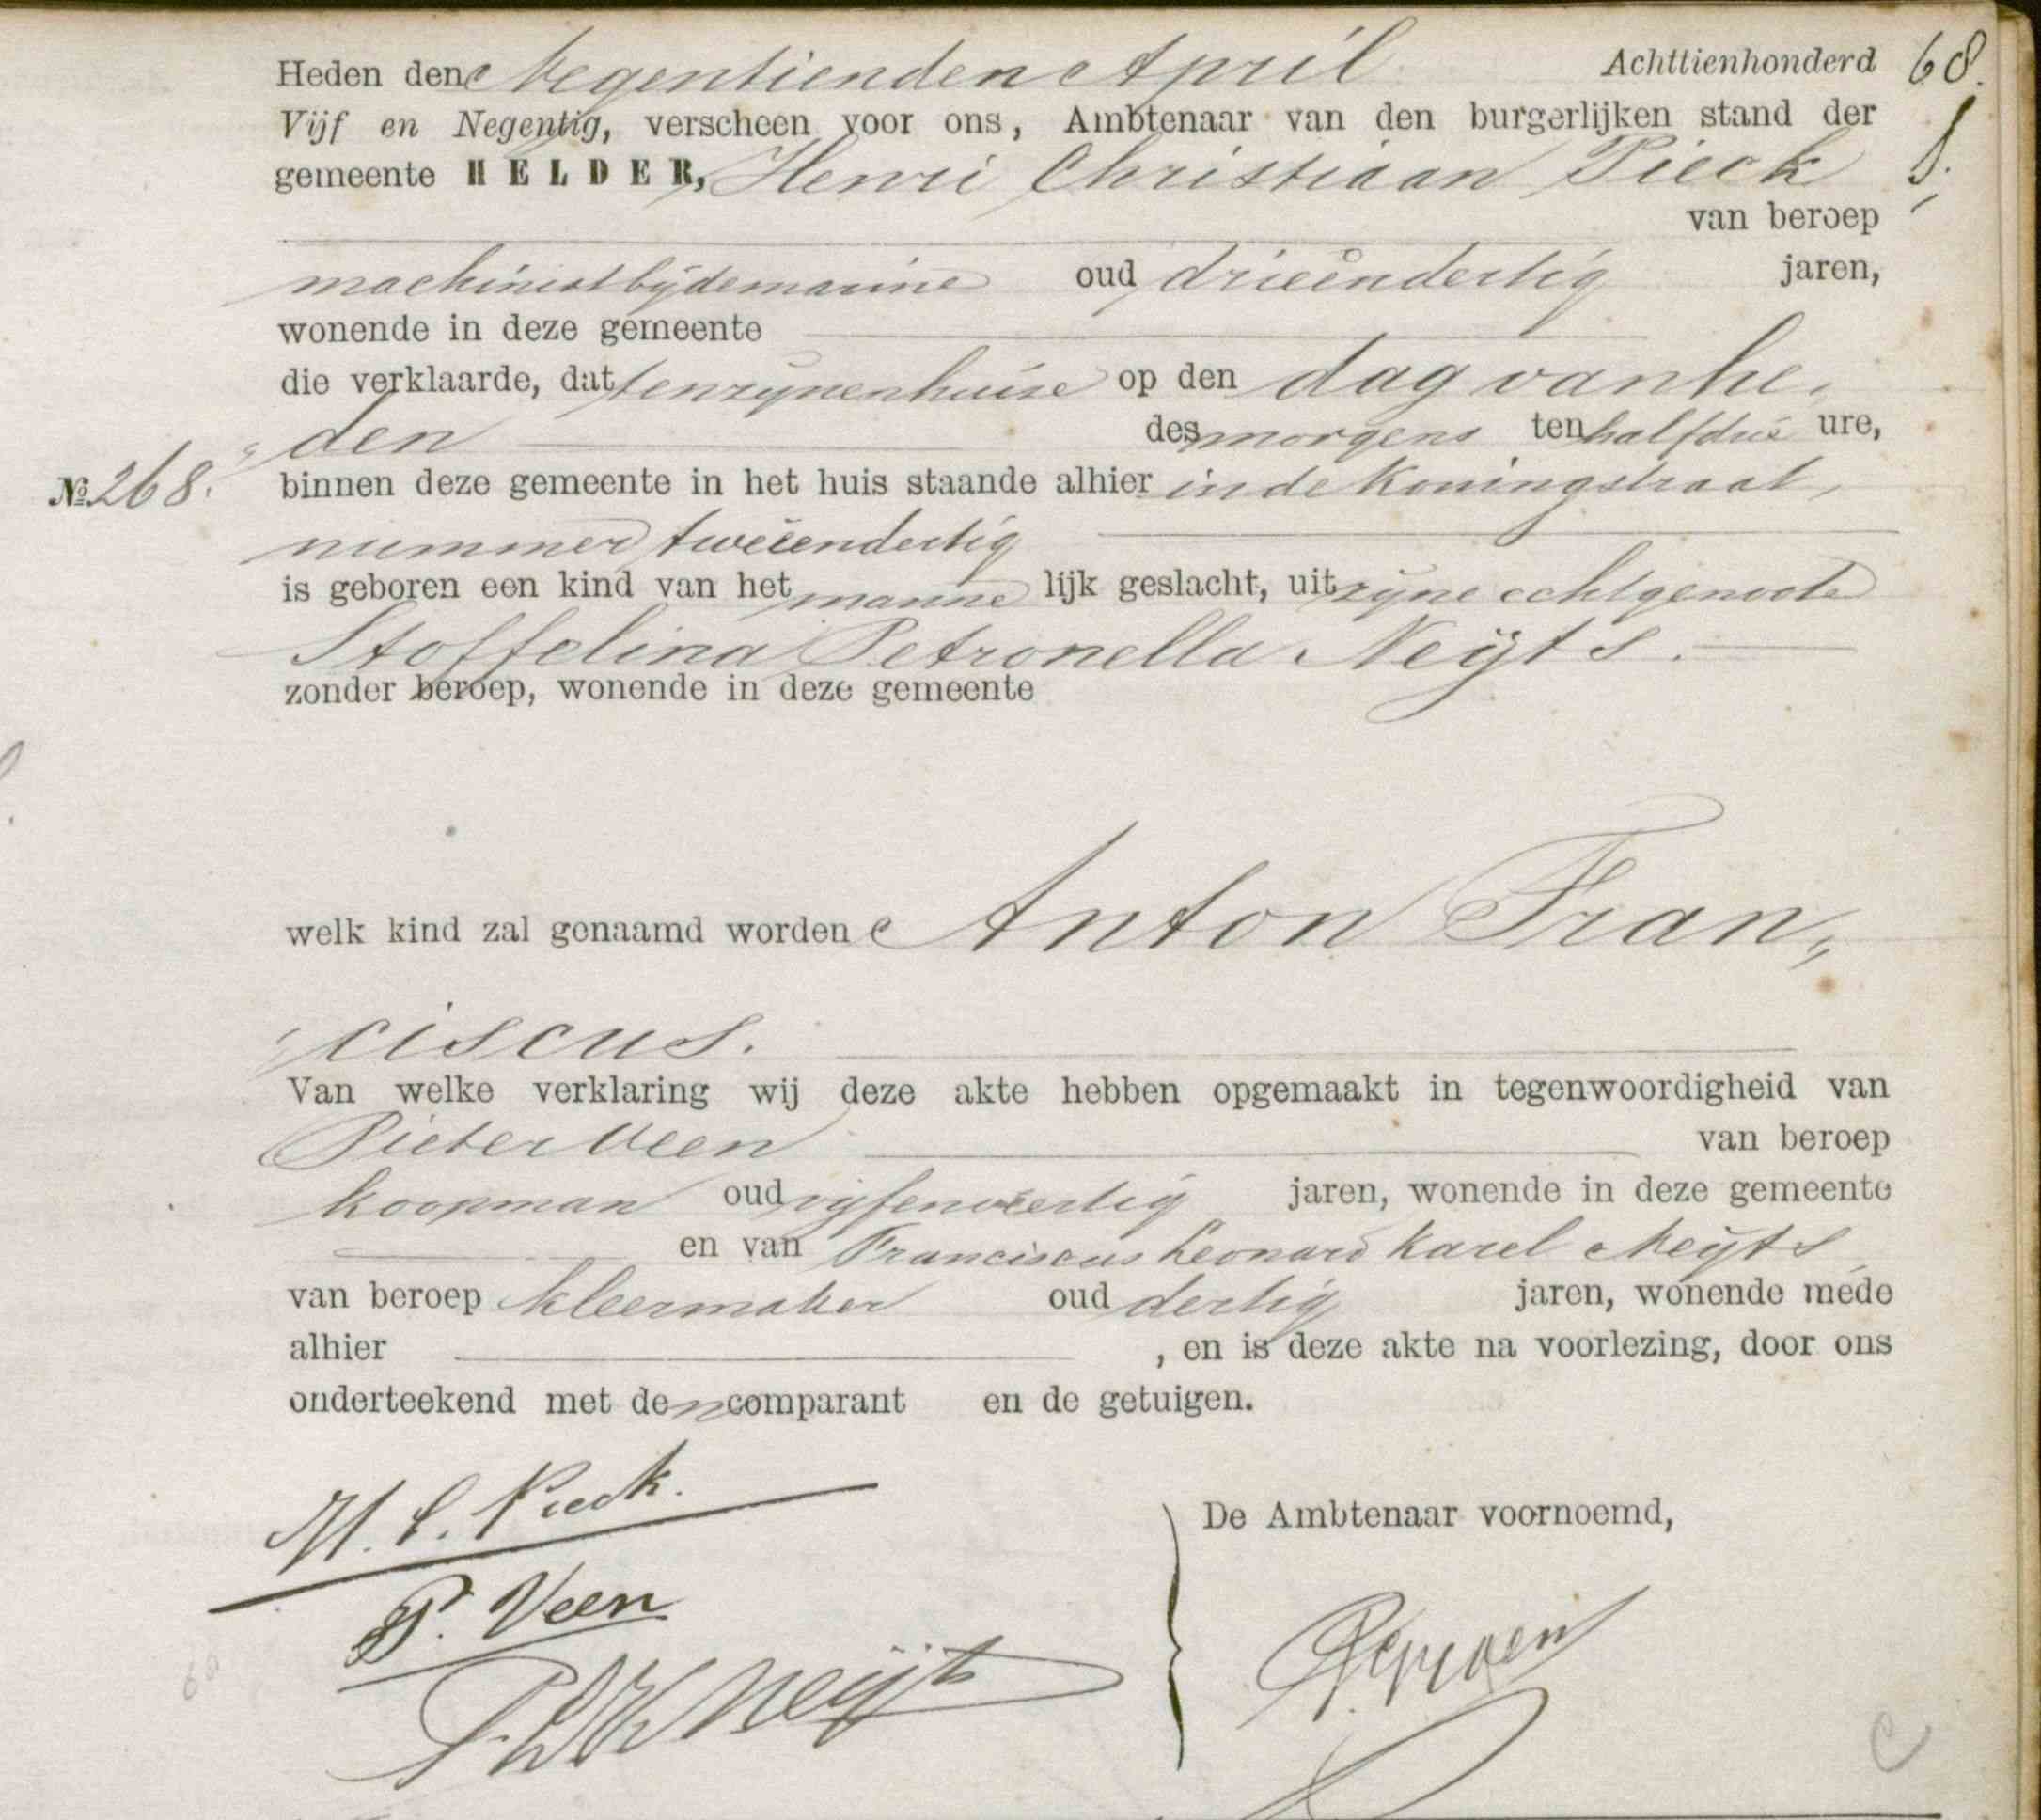 Heden den Negentienden April Achttienhonderd 68.
Vijf en Negentig, verscheen voor ons, Ambtenaar van den burgerlijken stand der
gemeente HELDER, Henri Christiaan Pieck
van beroep
machinist bij de marine oud drieëndertig jaren,
wonende in deze gemeente
die verklaarde, dat ten zijnen huize op den dag van he„
„den des morgens ten half drie ure,
No. 268. binnen deze gemeente in het huis staande alhier in de Koningstraat,
nummer tweeëndertig
is geboren een kind van het manne lijk geslacht, uit zijne echtgenoote
Stoffelina Petronella Neijts.
zonder beroep, wonende in deze gemeente
welk kind zal genaamd worden Anton Fran„
„ciscus.
Van welke verklaring wij deze akte hebben opgemaakt in tegenwoordigheid van
Pieter Veen van beroep
koopman oud vijfenveertig jaren, wonende in deze gemeente
en van Franciscus Leonard Karel Neijts
van beroep kleermaker oud dertig jaren, wonende mede
alhier , en is deze akte na voorlezing, door ons
onderteekend met den comparant en de getuigen.
H. C. Pieck.
De Ambtenaar voornoemd,
P. Veen
F L K Neijts